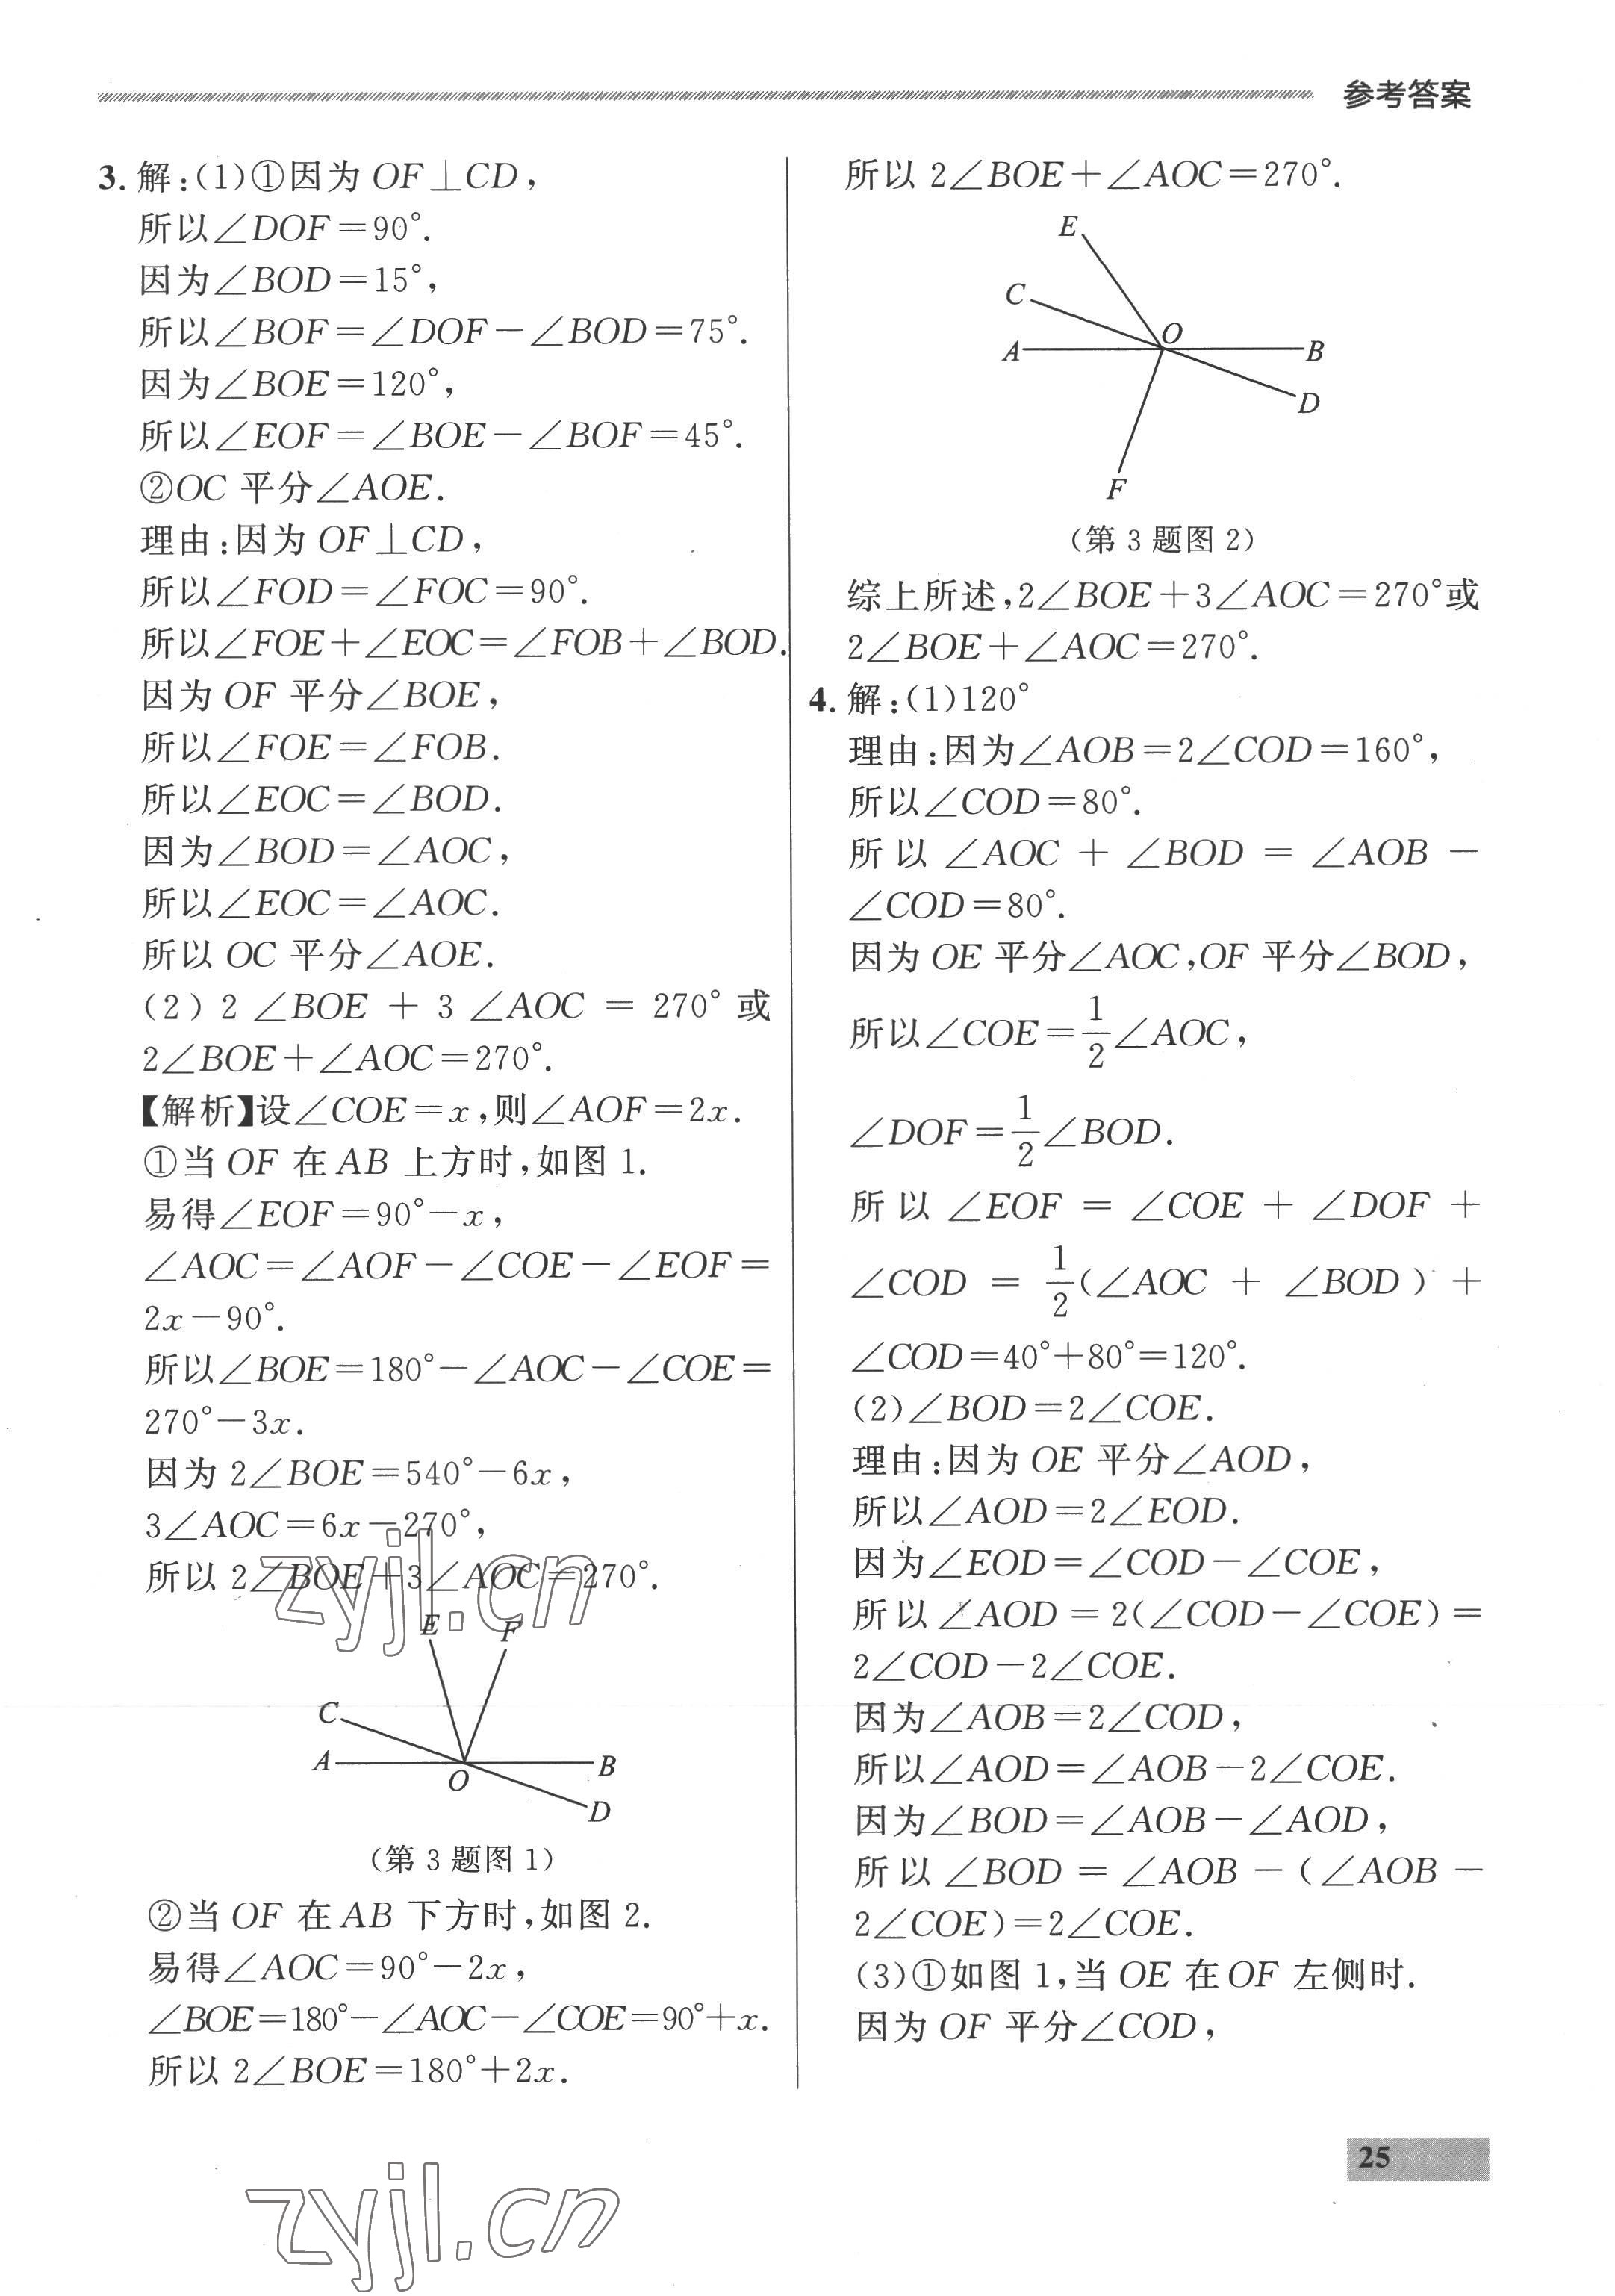 参考答案
3. 解:(1)①因为 OF⊥CD,
所以∠DOF=90°.
因为∠BOD=15°,
所以∠BOF=∠DOF-∠BOD=75°.
因为∠BOE=120°,
所以∠EOF=∠BOE-∠BOF=45°.
②OC 平分∠AOE.
理由:因为 OF⊥CD,
所以∠FOD=∠FOC=90°.
所以∠FOE+∠EOC=∠FOB+∠BOD.
因为 OF 平分∠BOE,
所以∠FOE=∠FOB.
所以∠EOC=∠BOD.
因为∠BOD=∠AOC,
所以∠EOC=∠AOC.
所以 OC 平分∠AOE.
(2) 2 ∠BOE + 3 ∠AOC = 270° 或
2∠BOE+∠AOC=270°.
【解析】设∠COE=x,则∠AOF=2x.
①当 OF 在 AB 上方时,如图 1.
易得∠EOF=90°-x,
∠AOC=∠AOF-∠COE-∠EOF=
2x-90°.
所以∠BOE=180°-∠AOC-∠COE=
270°-3x.
因为 2∠BOE=540°-6x,
3∠AOC=6x-270°,
所以 2∠BOE+3∠AOC=270°.
zyjl.cn
E
F
C
A
O
B
D
(第 3 题图 1)
②当 OF 在 AB 下方时,如图 2.
易得∠AOC=90°-2x,
∠BOE=180°-∠AOC-∠COE=90°+x.
所以 2∠BOE=180°+2x.
所以 2∠BOE+∠AOC=270°.
E
C
O
A
B
D
F
(第 3 题图 2)
综上所述,2∠BOE+3∠AOC=270°或
2∠BOE+∠AOC=270°.
4. 解:(1)120°
理由:因为∠AOB=2∠COD=160°,
所以∠COD=80°.
所以 ∠AOC + ∠BOD = ∠AOB -
∠COD=80°.
因为 OE 平分∠AOC,OF 平分∠BOD,
所以∠COE=1/2∠AOC,
∠DOF=1/2∠BOD.
所以 ∠EOF = ∠COE + ∠DOF +
∠COD = 1/2(∠AOC + ∠BOD) +
∠COD=40°+80°=120°.
(2)∠BOD=2∠COE.
理由:因为 OE 平分∠AOD,
所以∠AOD=2∠EOD.
因为∠EOD=∠COD-∠COE,
所以∠AOD=2(∠COD-∠COE)=
2∠COD-2∠COE.
因为∠AOB=2∠COD,
所以∠AOD=∠AOB-2∠COE.
因为∠BOD=∠AOB-∠AOD,
所以 ∠BOD = ∠AOB-(∠AOB-
2∠COE)=2∠COE.
(3)①如图 1,当 OE 在 OF 左侧时.
因为 OF 平分∠COD,
25
zyjl.cn